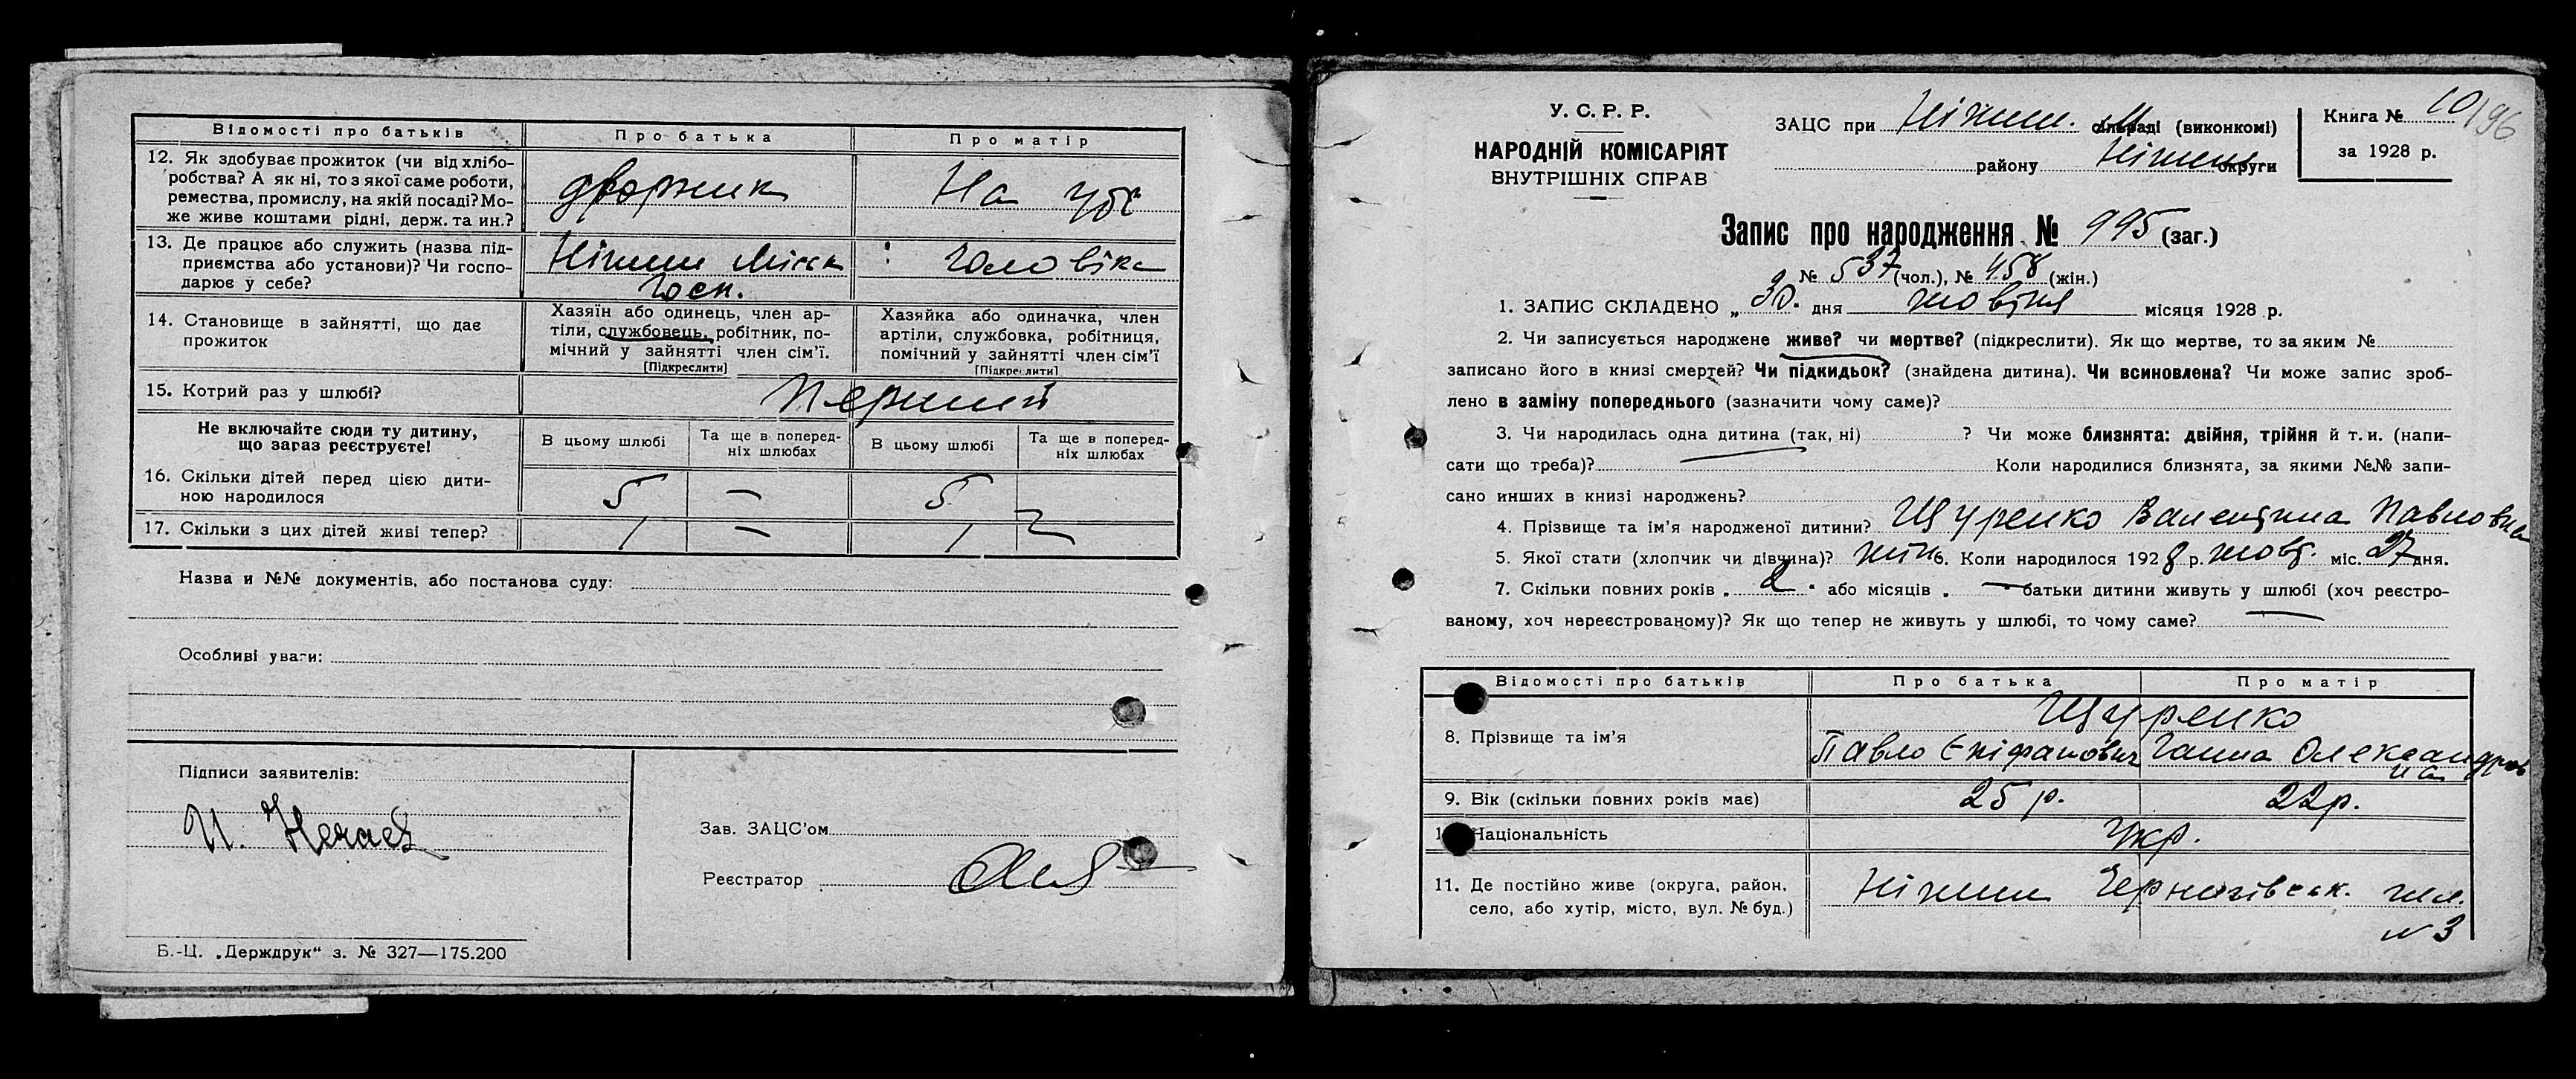 Відомості про батьків
Про батька
Про матір
12. Як здобуває прожиток (чи від хлібо-
робства? А як ні, то з якої саме роботи,
ремества, промислу, на якій посаді? Мо-
же живе коштами рідні, держ. та ин.?
дворник
На
13. Де працює або служить (назва під-
приємства або установи)? Чи госпо-
дарює у себе?
Ніжин Міськ
Госп.
чоловіка
14. Становище в зайнятті, що дає
прожиток
Хазяїн або одинець, член ар-
тіли, службовець, робітник, по-
мічний у зайнятті член сім'ї.
[Підкреслити]
Хазяйка або одиначка, член
артіли, службовка, робітниця,
помічний у зайнятті член сім'ї
[Підкреслити]
15. Котрий раз у шлюбі?
Перший
Не включайте сюди ту дитину,
що зараз реєструєте!
В цьому шлюбі
Та ще в поперед-
ніх шлюбах
В цьому шлюбі
Та ще в поперед-
ніх шлюбах
16. Скільки дітей перед цією дити-
ною народилося
5 — 5
17. Скільки з цих дітей живі тепер?
1 — 1
Назва и №№ документів, або постанова суду:
Особливі уваги:
Підписи заявителів:
И. Нечаев
Зав. ЗАЦС'ом
Реєстратор
Б.-Ц. „Держдрук" з. № 327—175.200
У. С. Р. Р.
НАРОДНІЙ КОМІСАРІЯТ
ВНУТРІШНІХ СПРАВ
ЗАЦС при Ніжин. М сільраді (виконкомі)
району Ніжин округи
Книга № 10/96
за 1928 р.
Запис про народження № 995 (заг.)
№ 537 (чол.), № 458 (жін.)
1. ЗАПИС СКЛАДЕНО „ 30. дня жовтня місяця 1928 р.
2. Чи записується народжене живе? чи мертве? (підкреслити). Як що мертве, то за яким №
записано його в книзі смертей? Чи підкидьок? (знайдена дитина). Чи всиновлена? Чи може запис зроб-
лено в заміну попереднього (зазначити чому саме)?
3. Чи народилась одна дитина (так, ні) ? Чи може близнята: двійня, трійня й т. и. (напи-
сати що треба)? Коли народилися близнята, за якими №№ запи-
сано инших в книзі народжень?
4. Прізвище та ім'я народженої дитини? Щуренко Валентина Павловна
5. Якої стати (хлопчик чи дівчина)? жін 6. Коли народилося 1928 р. жовт. міс. 27 дня.
7. Скільки повних років „ 2 " або місяців „ — батьки дитини живуть у шлюбі (хоч реєстро-
ваному, хоч нереєстрованому)? Як що тепер не живуть у шлюбі, то чому саме? —
Відомості про батьків
Про батька
Про матір
8. Прізвище та ім'я
Щуренко
Павло Єпіфанович
Ганна Олександров
на
9. Вік (скільки повних років має)
25 р.
22 р.
Національність
Укр.
11. Де постійно живе (округа, район,
село, або хутір, місто, вул. № буд.)
Ніжин Чернигівськ. шл.
№ 3